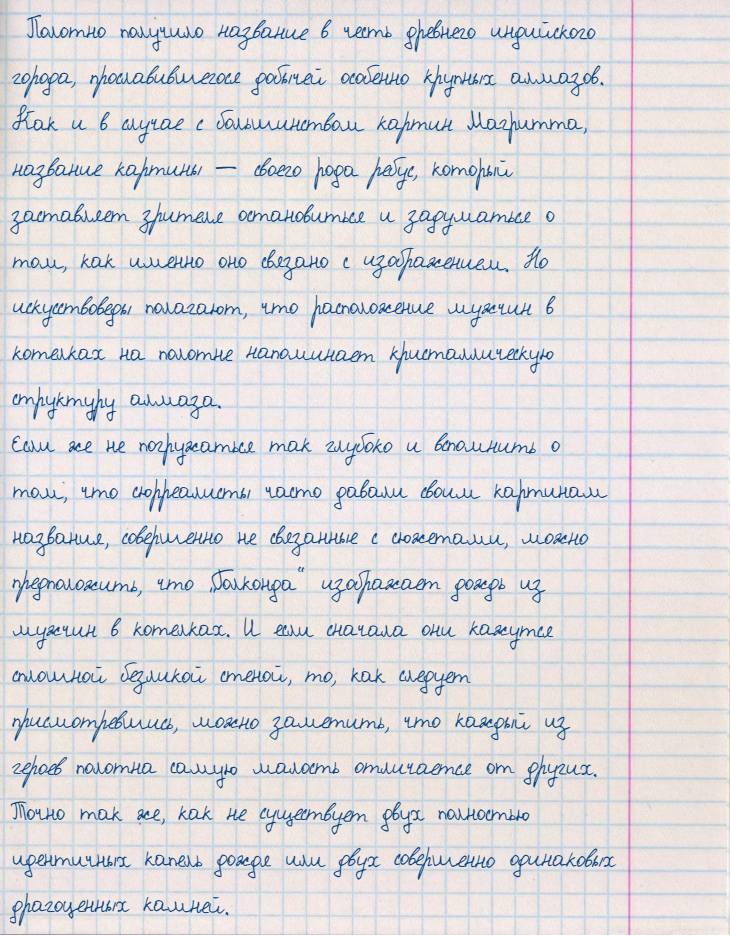 Полотно получило название в честь древнего индийского
города, прославившегося добычей особенно крупных алмазов.
Как и в случае с большинством картин Магритта,
название картины — своего рода ребус, который
заставляет зрителя остановиться и задуматься о
том, как именно оно связано с изображением. Но
искусствоведы полагают, что расположение мужчин в
котелках на полотне напоминает кристаллическую
структуру алмаза.
Если же не погружаться так глубоко и вспомнить о
том, что сюрреалисты часто давали своим картинам
названия, совершенно не связанные с сюжетами, можно
предположить, что „Голконда“ изображает дождь из
мужчин в котелках. И если сначала они кажутся
сплошной безликой стеной, то, как следует
присмотревшись, можно заметить, что каждый из
героев полотна самую малость отличается от других.
Точно так же, как не существует двух полностью
идентичных капель дождя или двух совершенно одинаковых
драгоценных камней.